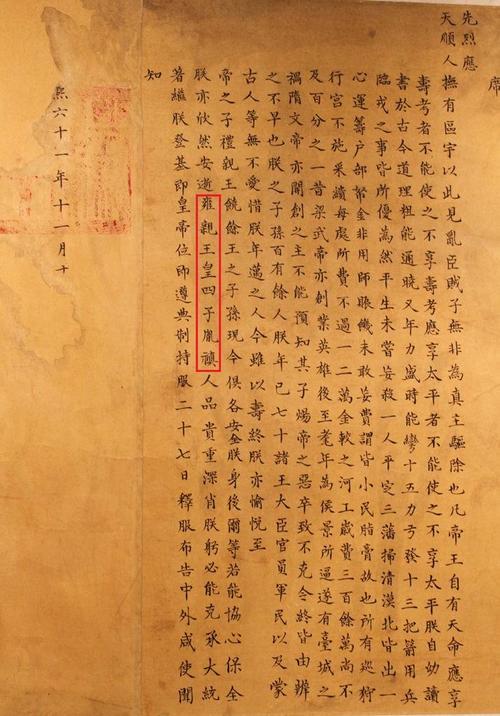 席
先烈應
天順人撫有區宇以此見亂臣賊子無非為真主驅除也凡帝王自有天命應享
壽考者不能使之不享壽考應享太平者不能使之不享太平朕自幼讀
書於古今道理粗能通曉又年力盛時能彎十五力弓發十三把箭用兵
臨戎之事皆所優為然平生未嘗妄殺一人平定三藩掃清漠北皆出一
心運籌戶部帑金非用師賑饑未敢妄費謂皆小民脂膏故也所有巡狩
行宮不施采繢每處所費不過一二萬金較之河工歲費三百餘萬尚不
及百分之一昔梁武帝亦創業英雄後至耄年為侯景所逼遂有臺城之
禍隋文帝亦開創之主不能預知其子煬帝之惡卒致不克令終皆由辨
之不早也朕之子孫百有餘人朕年已七十諸王大臣官員軍民以及蒙
古人等無不愛惜朕年邁之人今雖以壽終朕亦愉悅至
帝之子禮親王饒餘王之子孫現今俱各安全朕身後爾等若能協心保全
朕亦欣然安逝雍親王皇四子胤禛人品貴重深肖朕躬必能克承大統
著繼朕登基即皇帝位即遵典制持服二十七日釋服布告中外咸使聞
知
熙六十一年十一月十